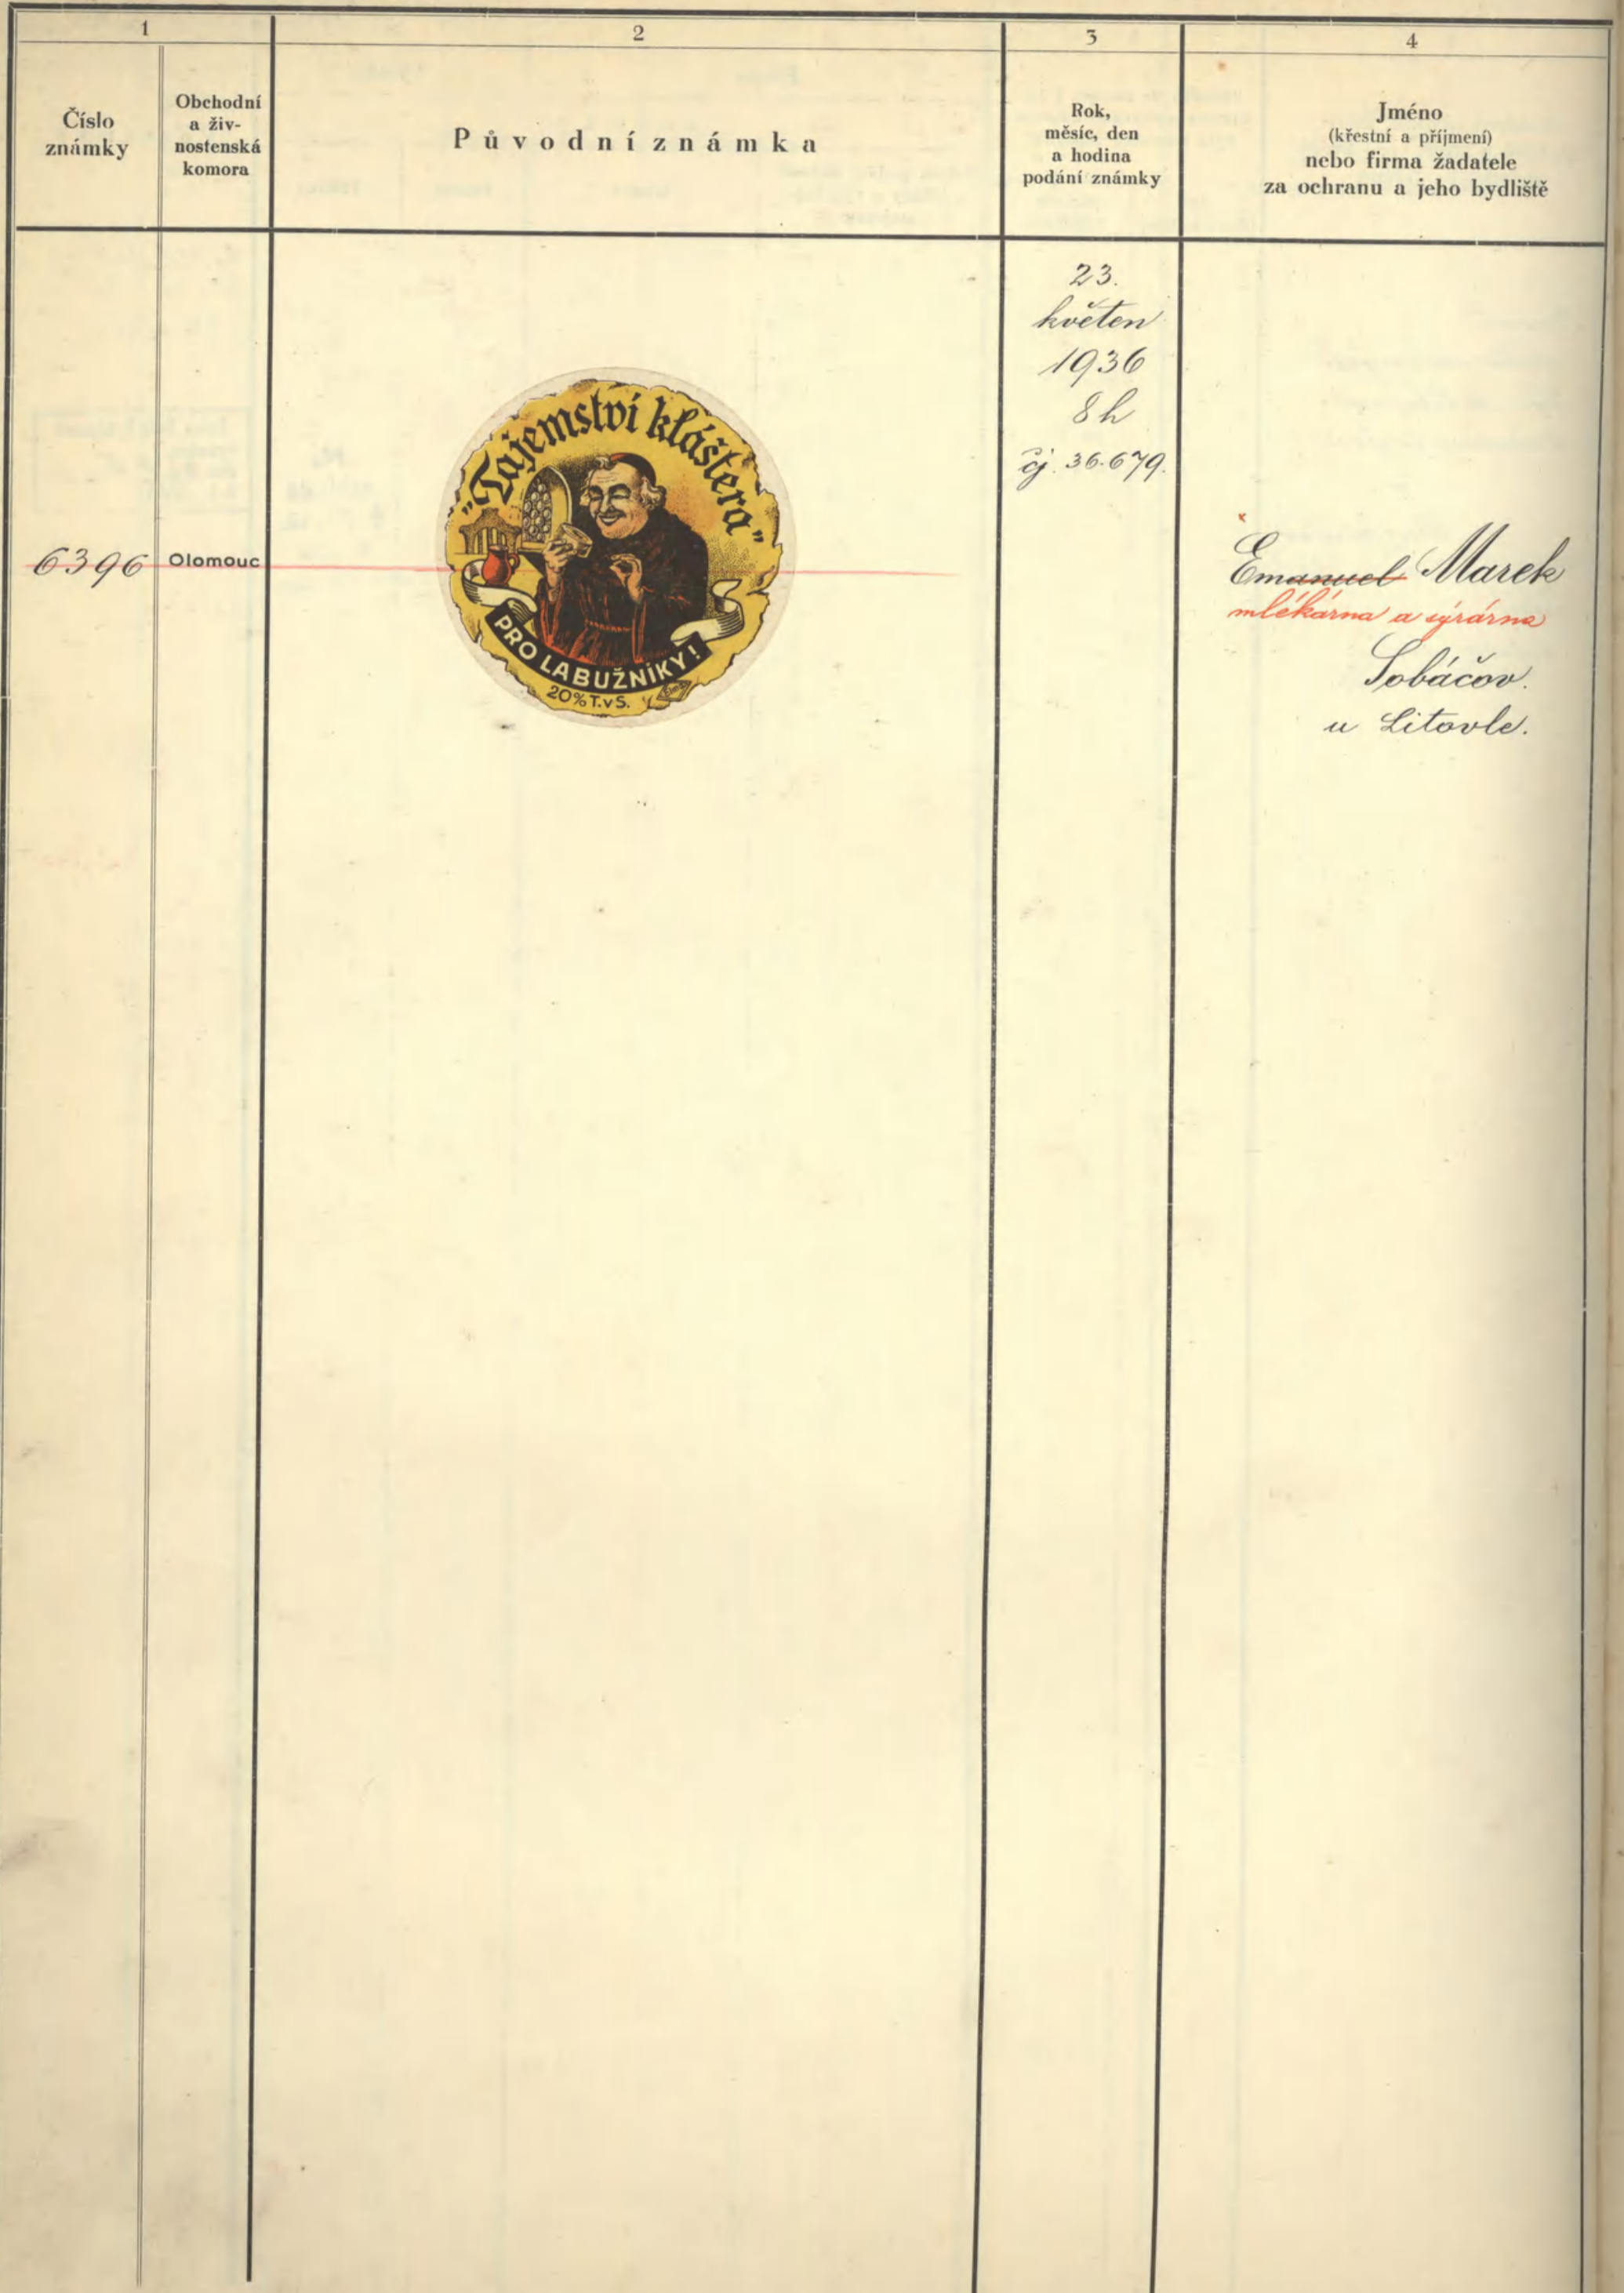 1
2
3
4
Číslo
známky
Obchodní
a živ-
nostenská
komora
Původní známka
Rok,
měsíc, den
a hodina
podání známky
Jméno
(křestní a příjmení)
nebo firma žadatele
za ochranu a jeho bydliště
6396
Olomouc
"Tajemství kláštera"
PRO LABUŽNÍKY!
20% T.vS.
23.
květen
1936
8 h
čj. 36.679.
Emanuel Marek
mlékárna a sýrárna
Sobáčov.
u Litovle.